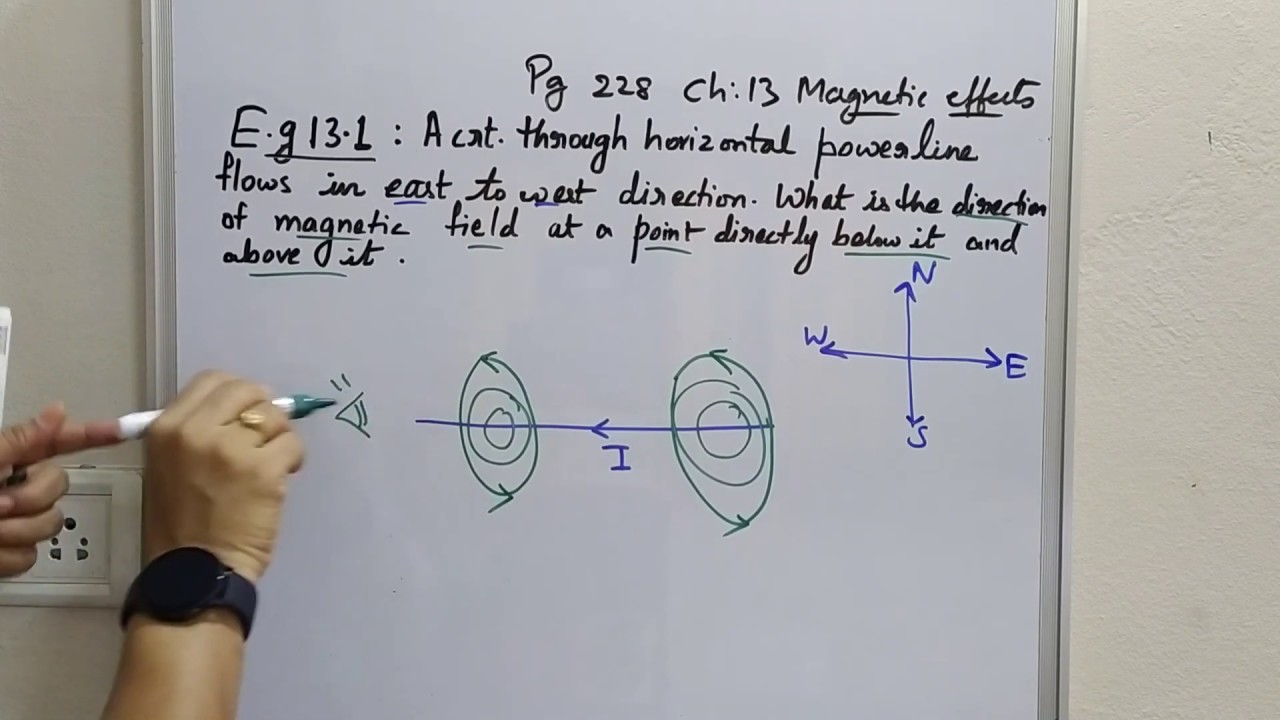 Pg 228 Ch:13 Magnetic effects
E.g 13.1 : A crt. through horizontal powerline
flows in east to west direction. What is the direction
of magnetic field at a point directly below it and
above it .
N
W
E
S
I